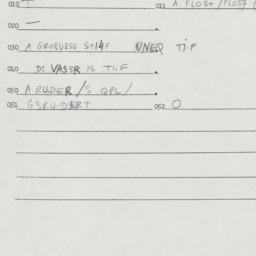 010 T 011 A FLOST/FLOS7/
020 —
030 A GROBURSE ST14F UNEQ TI.F
040 DI VAS3R IS TI.F
050 A RUDER /S QPL/
051 G3RUDERT 052 O